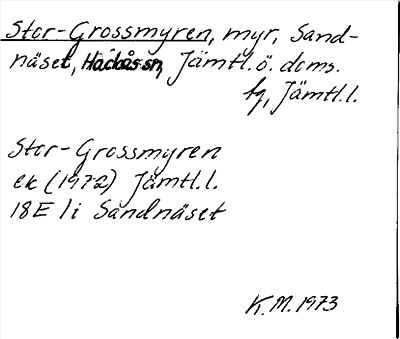 Stor-Grossmyren, myr, Sand-
näset, Hackås sn, Jämtl.ö. doms.
fg, Jämtl.l.
Stor-Grossmyren
ek (1972) Jämtl.l.
18E 1i Sandnäset
K.M. 1973